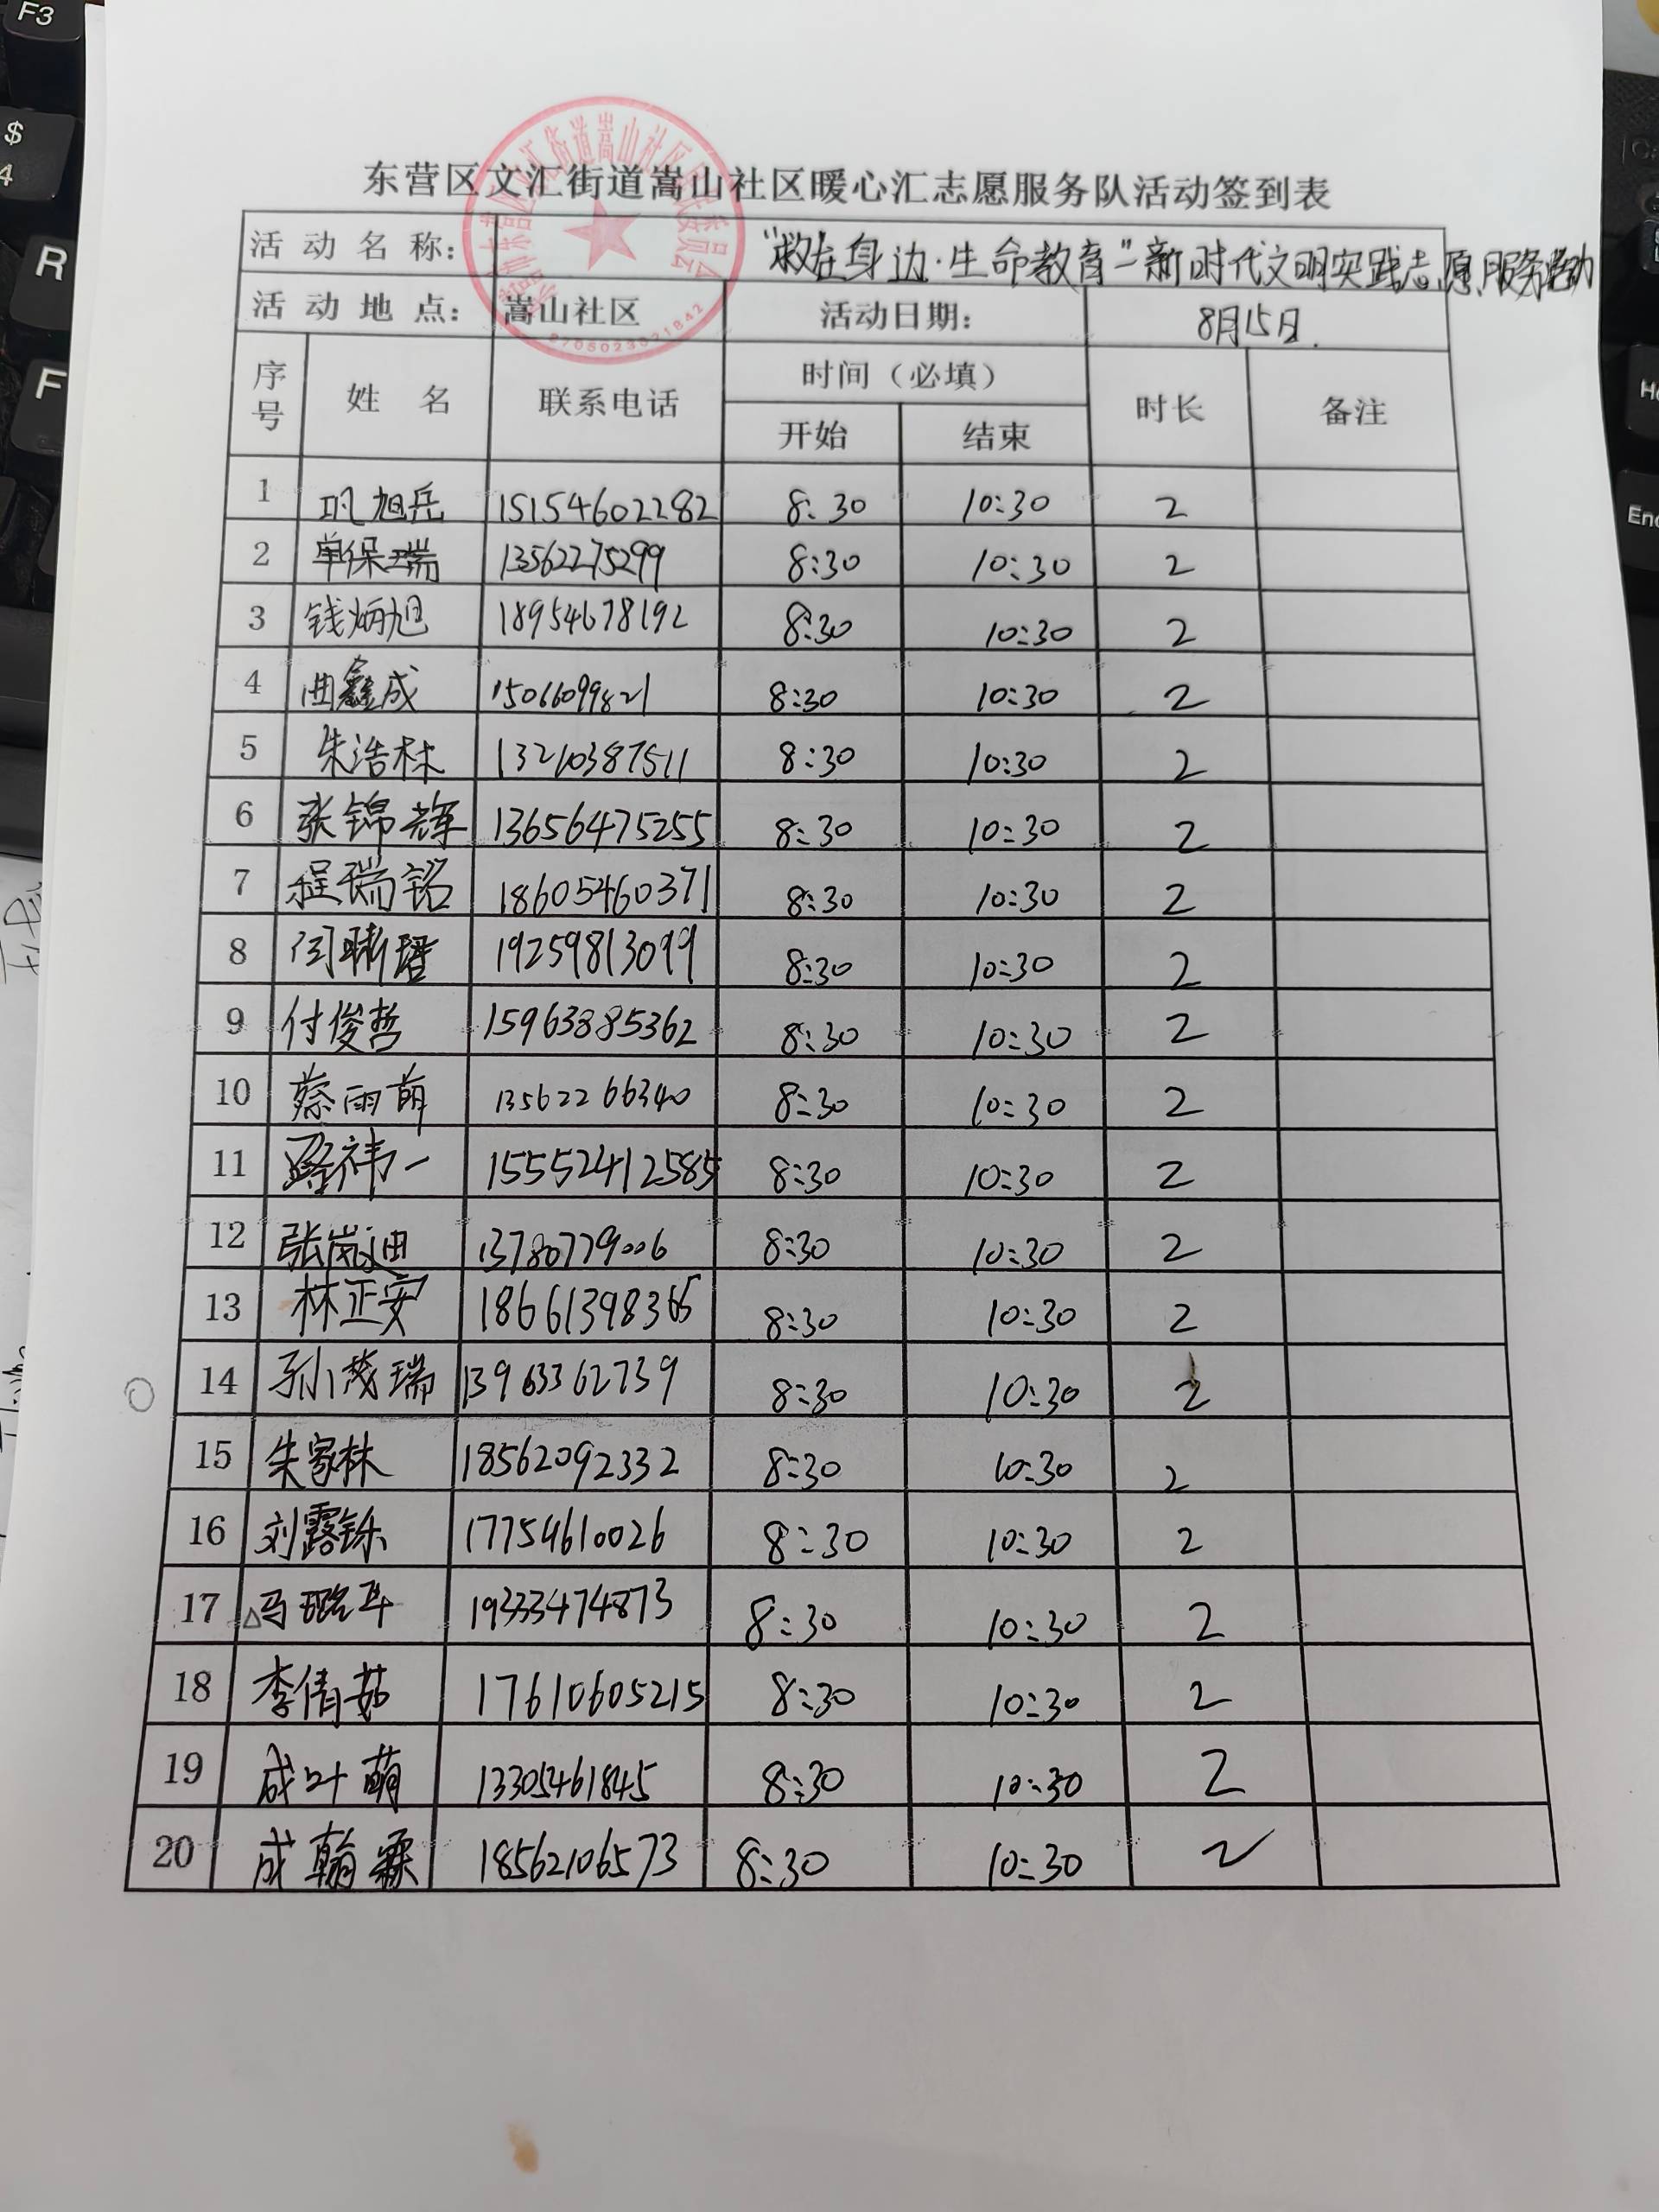 东营区文汇街道嵩山社区暖心汇志愿服务队活动签到表
活动名称： "救在身边·生命教育"-新时代文明实践志愿服务活动
活动地点： 嵩山社区 活动日期： 8月15日.
序号 姓 名 联系电话 时间（必填） 时长 备注
开始 结束
1 巩旭岳 15154602282 8:30 10:30 2
2 单保瑞 13562275299 8:30 10:30 2
3 钱炳旭 18954678192 8:30 10:30 2
4 曲鑫成 15066099821 8:30 10:30 2
5 朱浩林 13210387511 8:30 10:30 2
6 张锦辉 13656475255 8:30 10:30 2
7 程瑞铭 18605460371 8:30 10:30 2
8 19259813099 8:30 10:30 2
9 付俊哲 15963885362 8:30 10:30 2
10 蔡雨萌 13562266340 8:30 10:30 2
11 路祎一 15552412585 8:30 10:30 2
12 张岚迪 13780779006 8:30 10:30 2
13 林正安 18661398365 8:30 10:30 2
14 孙茂瑞 13963362739 8:30 10:30 2
15 朱家林 18562092332 8:30 10:30 2
16 刘露铄 17754610026 8:30 10:30 2
17 19333474873 8:30 10:30 2
18 李倩茹 17610605215 8:30 10:30 2
19 成叶萌 13305461845 8:30 10:30 2
20 成翰霖 18562106573 8:30 10:30 2
F3
$
4
R
F